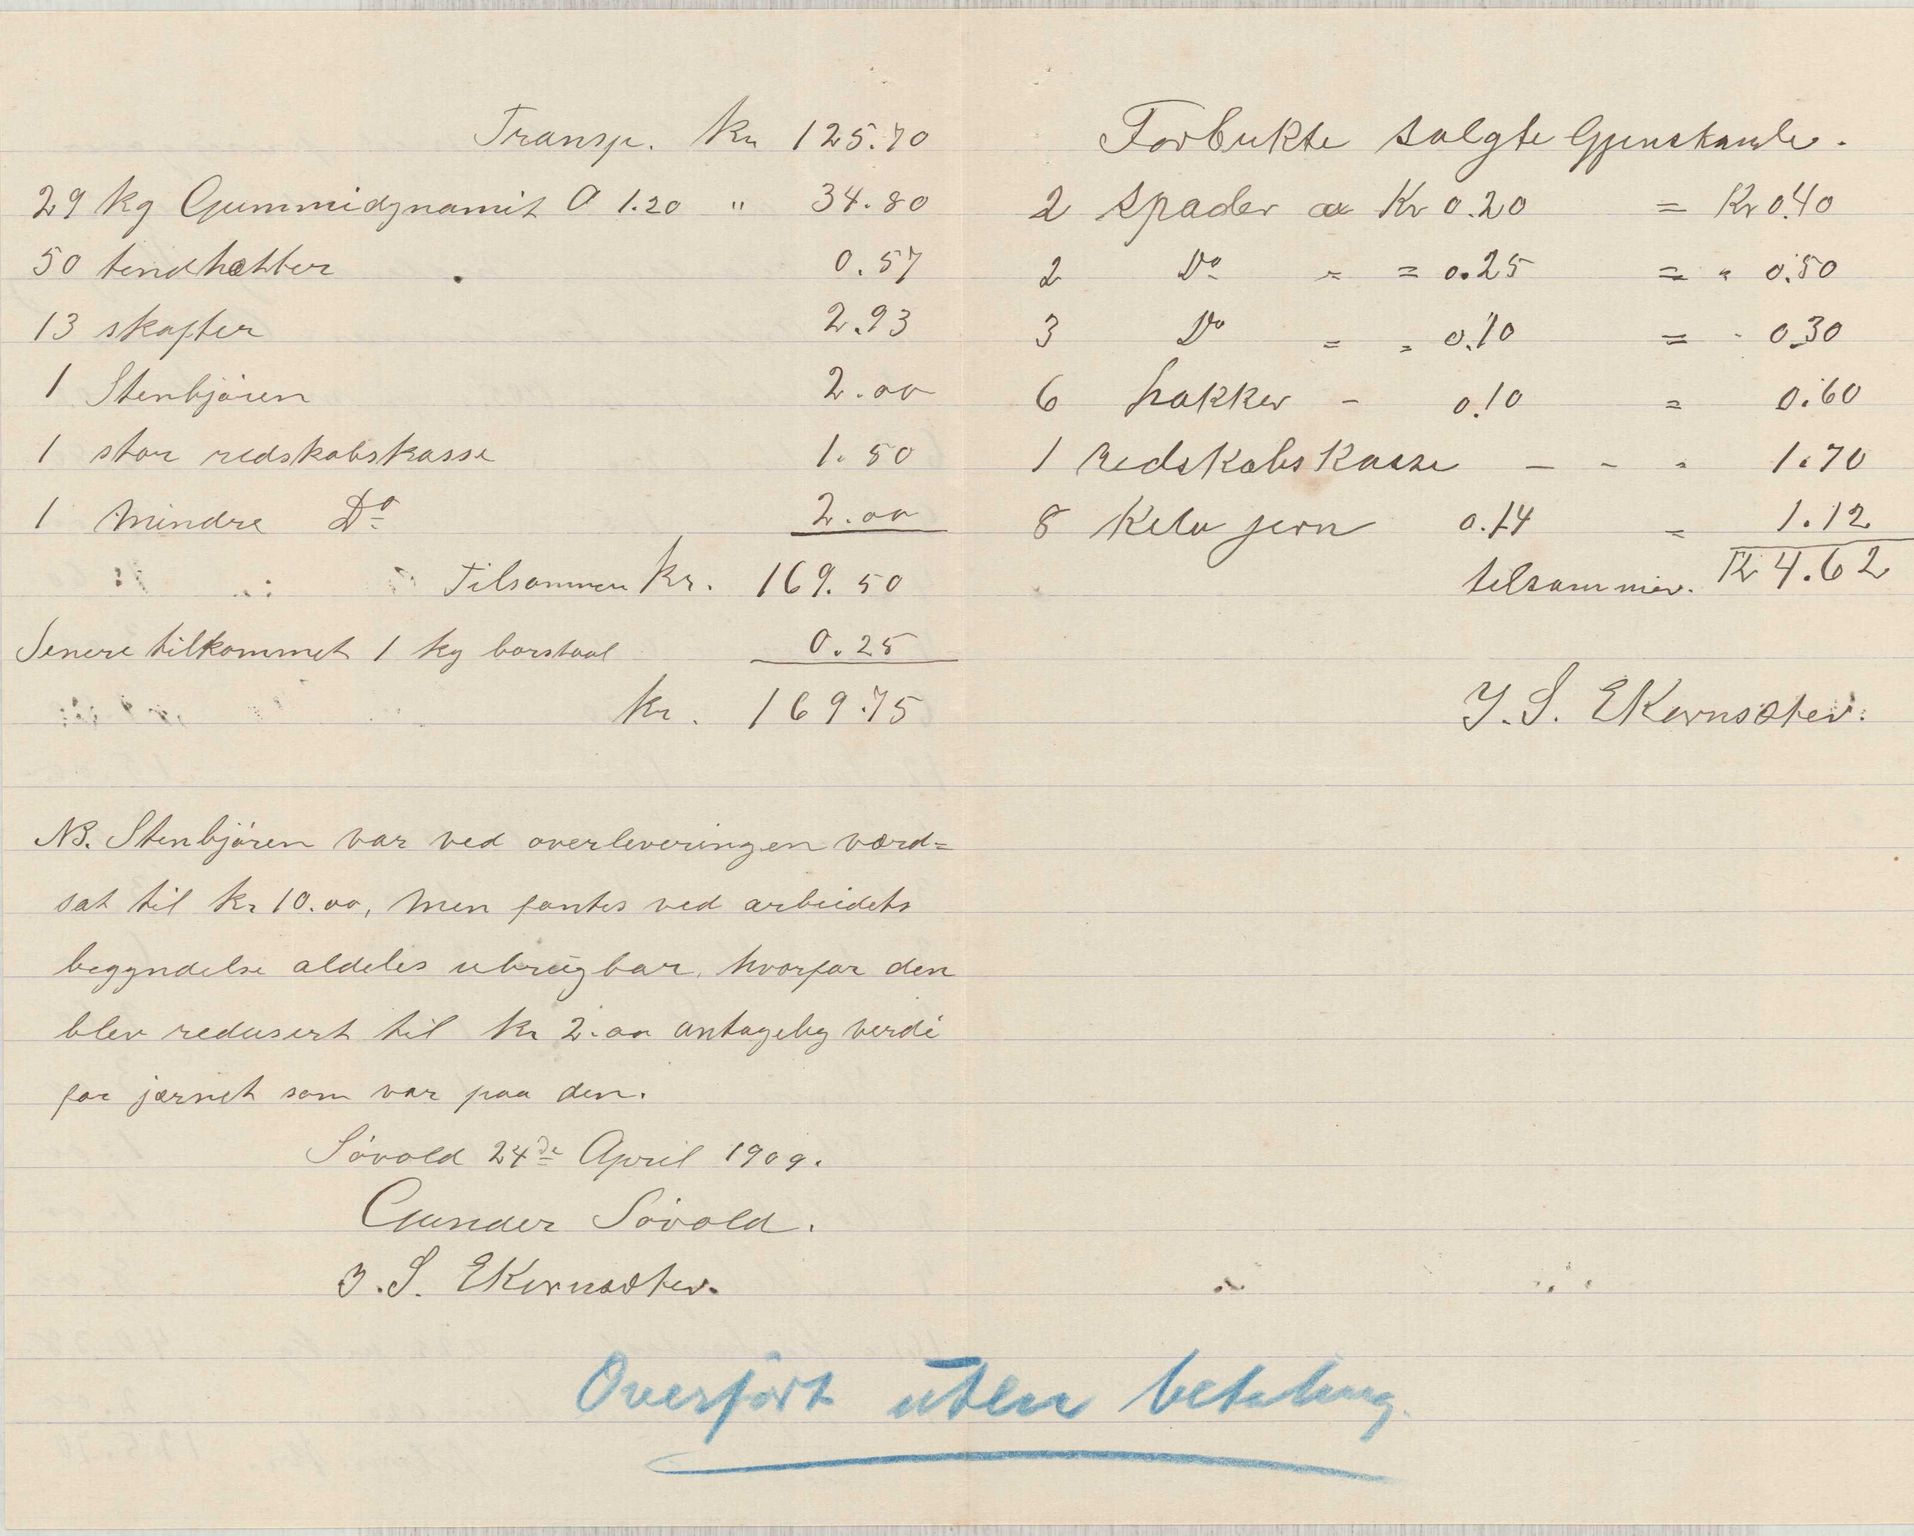 Transp. Kr 125.70
29 kg Gummidynamit à 1.20 " 34.80
50 tendhætter 0.57
13 skafter 2.93
1 Stenbjören 2.00
1 stor redskabskasse 1.50
1 Mindre Do 2.00
Tilsammen Kr. 169.50
Senere tilkommet 1 kg borstaal 0.25
Kr. 169.75
NB. Stenbjören var ved overleveringen værd=
sat til kr 10.00, men fantes ved arbeidets
begyndelse aldeles ubrugbar, hvorfor den
blev redusert til kr 2.00 antagelig verdi
for jærnet som var paa den.
Sövold 24de April 1909.
Gunder Sövold.
J. S. Ekernsæter.
Forbukte solgte Gjenstande.
2 spader a Kr 0.20 = Kr 0.40
2 Do " = 0.25 = " 0.50
3 Do = " 0.10 = - 0.30
6 hakker - 0.10 = 0.60
1 redskabskasse - - " 1.70
8 Kelo jern 0.14 = 1.12
telsammen. Kr 4.62
J. S. Ekernsæter.
Overfört uten betaling